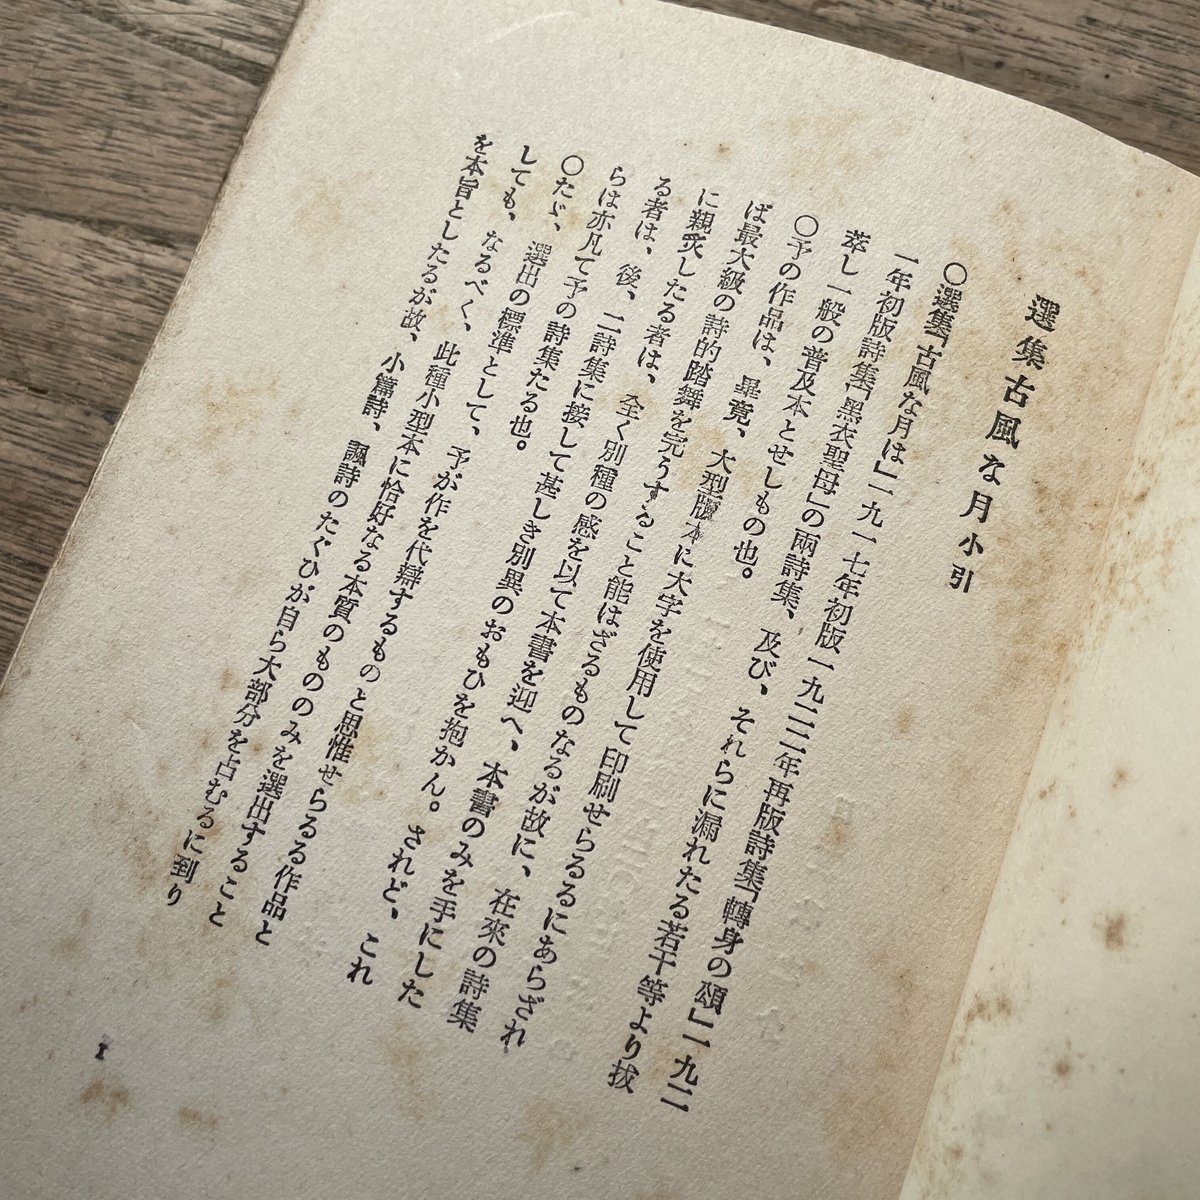 選集古風な月小引
〇選集「古風な月は」一九一七年初版一九二二年再版詩集「轉身の頌」一九二
一年初版詩集「黑衣聖母」の兩詩集、及び、それらに漏れたる若干等より拔
萃し一般の普及本とせしもの也。
〇予の作品は、畢竟、大型版本に大字を使用して印刷せらるるにあらざれ
ば最大級の詩的踏舞を完うすること能はざるものなるが故に、在來の詩集
に親炙したる者は、全く別種の感を以て本書を迎へ、本書のみを手にした
る者は、後、二詩集に接して甚しき別異のおもひを抱かん。されど、これ
らは亦凡て予の詩集たる也。
〇たゞ、選出の標準として、予が作を代辯するものと思惟せらるる作品と
しても、なるべく、此種小型本に恰好なる本質のもののみを選出すること
を本旨としたるが故、小篇詩、諷詩のたぐひが自ら大部分を占むるに到り
1